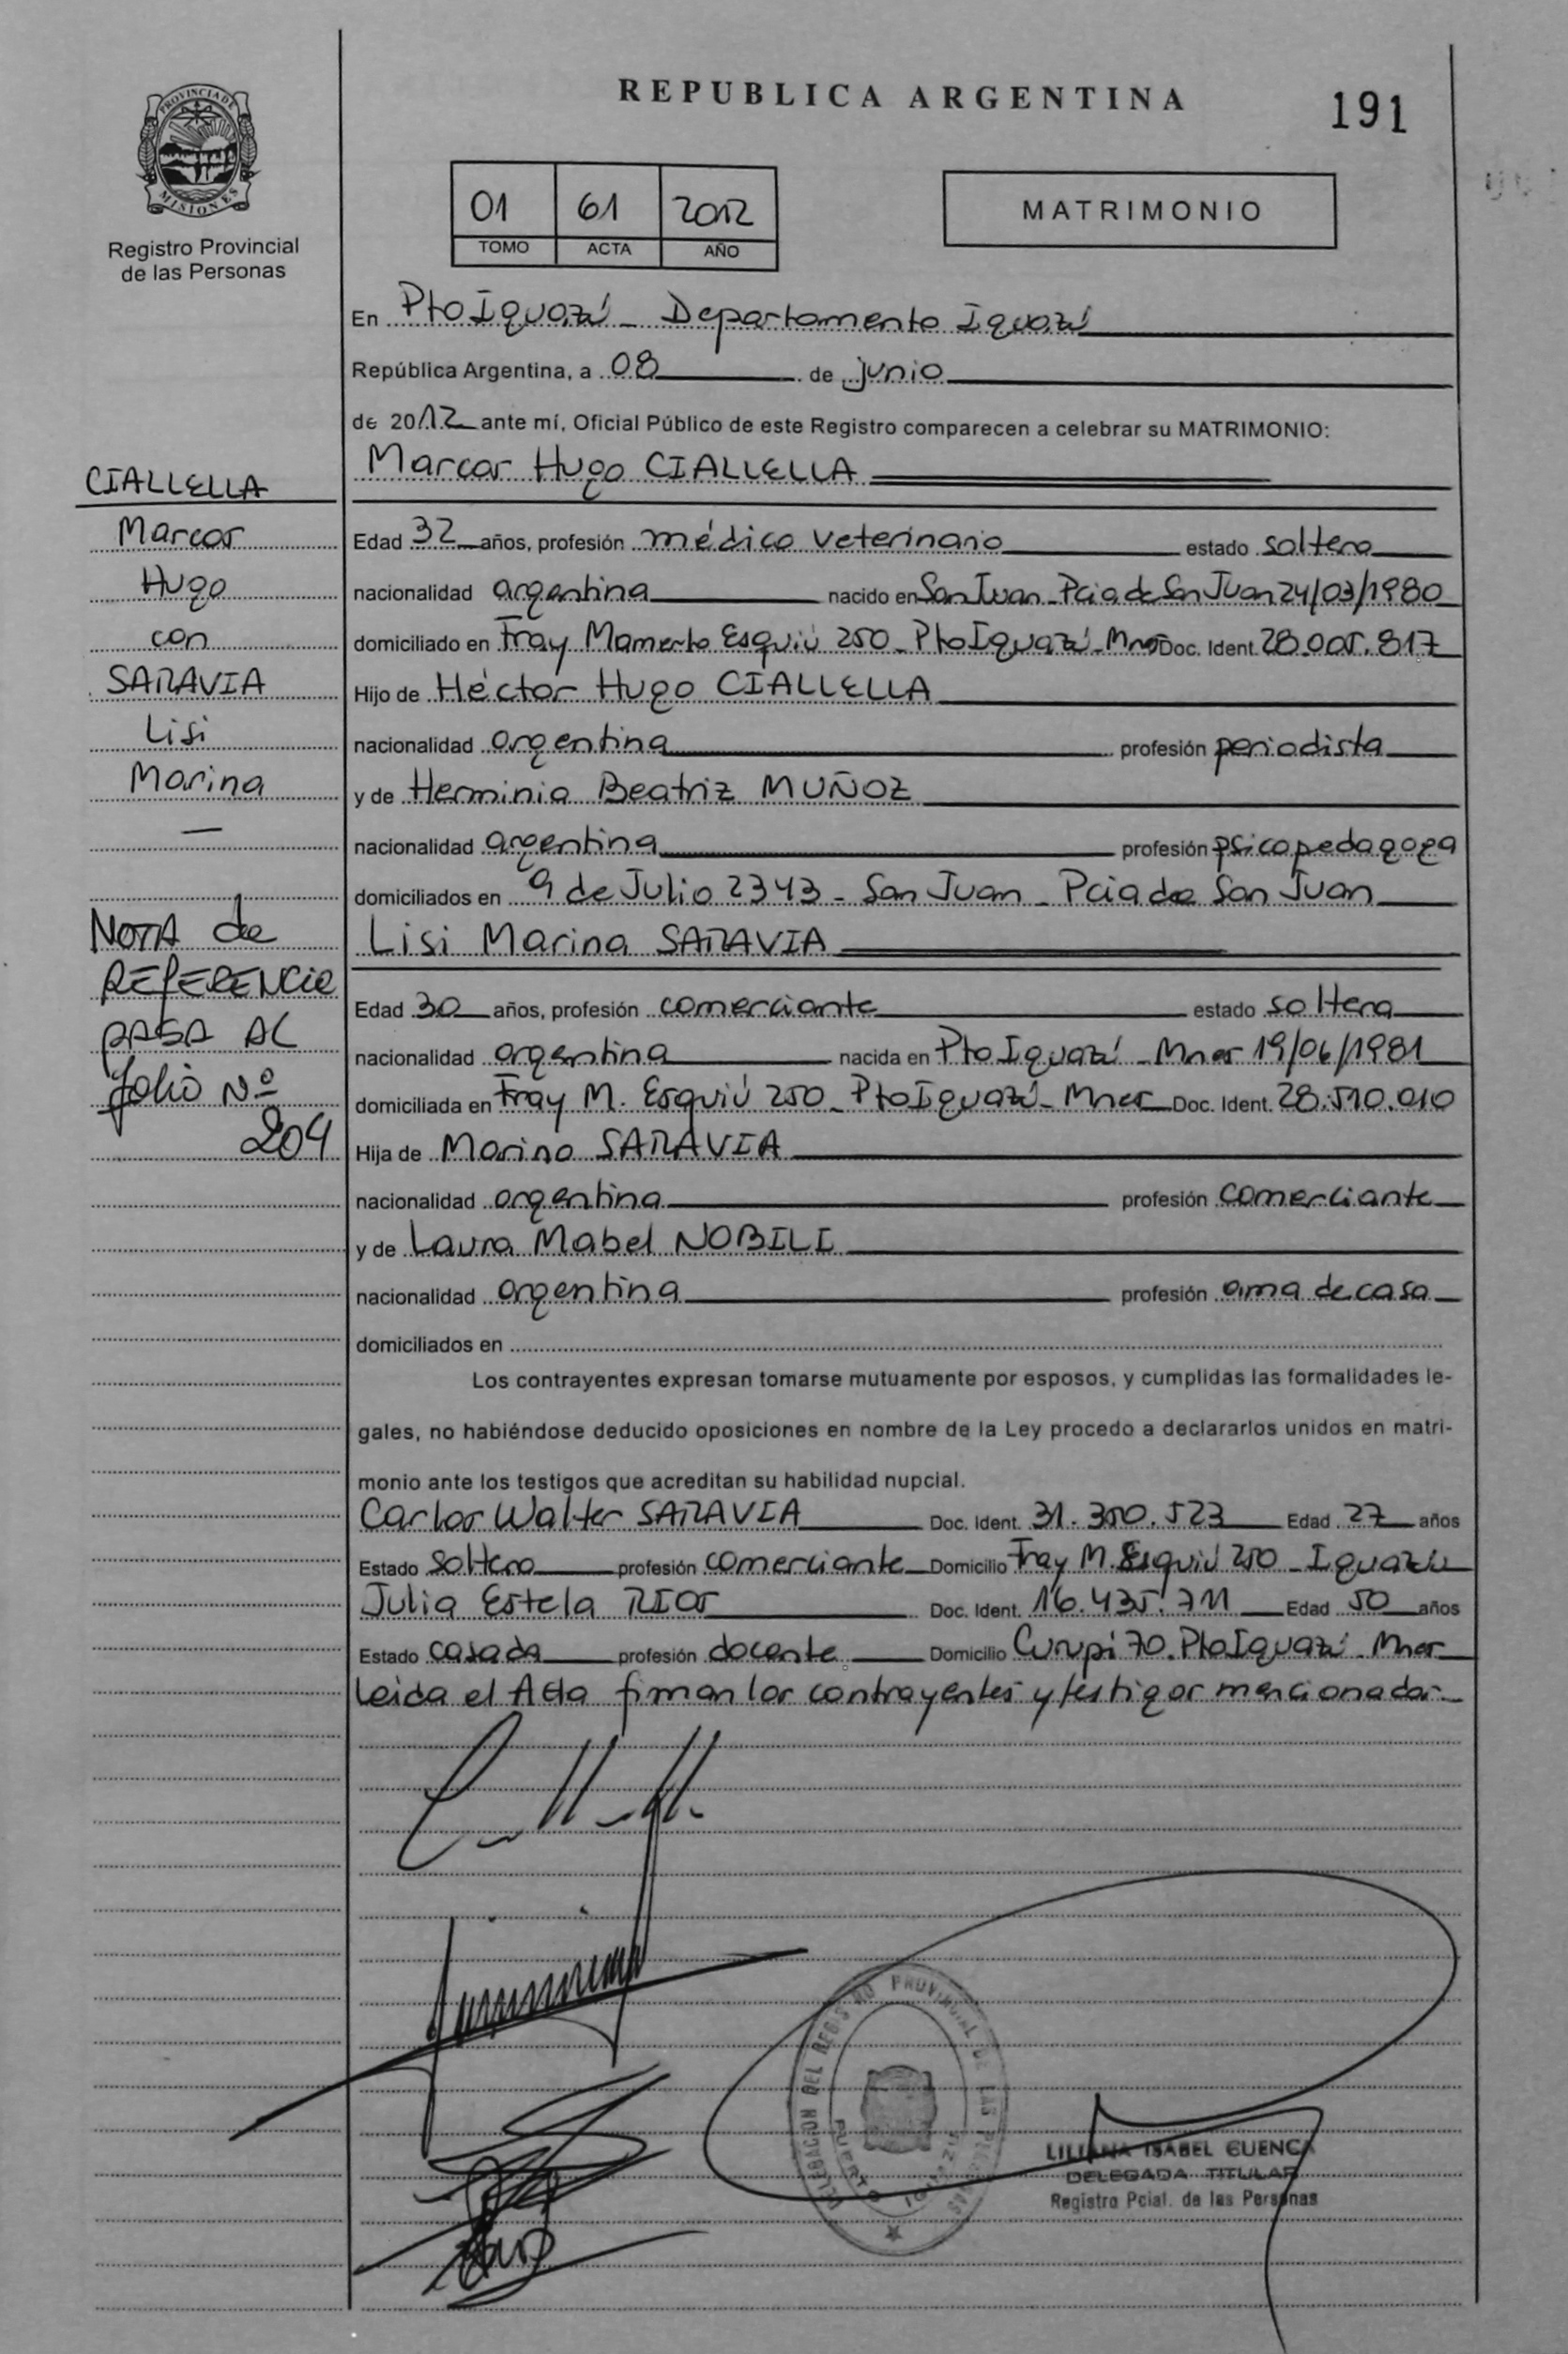 REPUBLICA ARGENTINA
191
PROVINCIA DE
MISIONES
Registro Provincial
de las Personas
01 61 2012
TOMO ACTA AÑO
MATRIMONIO
En Pto Iguazú - Departamento Iguazú
República Argentina, a 08 de junio
de 2012 ante mí, Oficial Público de este Registro comparecen a celebrar su MATRIMONIO:
Marcos Hugo CIALLELLA
CIALLELLA
Marcos
Hugo
con
SARAVIA
Lisi
Marina
—
NOTA de
REFERENCIA
PASA AL
folio Nº
204
Edad 32 años, profesión médico veterinario estado soltero
nacionalidad argentina nacido en San Juan - Pcia de San Juan 24/03/1980
domiciliado en Fray Mamerto Esquiú 250 - Pto Iguazú - Mnes Doc. Ident. 28.005.817
Hijo de Héctor Hugo CIALLELLA
nacionalidad argentina profesión periodista
y de Herminia Beatriz MUÑOZ
nacionalidad argentina profesión psicopedagoga
domiciliados en 9 de Julio 2343 - San Juan - Pcia de San Juan
Lisi Marina SARAVIA
Edad 30 años, profesión comerciante estado soltera
nacionalidad argentina nacida en Pto Iguazú - Mnes 19/06/1981
domiciliada en Fray M. Esquiú 250 - Pto Iguazú - Mnes Doc. Ident. 28.510.010
Hija de Marino SARAVIA
nacionalidad argentina profesión comerciante
y de Laura Mabel NOBILI
nacionalidad argentina profesión ama de casa
domiciliados en
Los contrayentes expresan tomarse mutuamente por esposos, y cumplidas las formalidades le-
gales, no habiéndose deducido oposiciones en nombre de la Ley procedo a declararlos unidos en matri-
monio ante los testigos que acreditan su habilidad nupcial.
Carlos Walter SARAVIA Doc. Ident. 31.350.523 Edad 27 años
Estado soltero profesión comerciante Domicilio Fray M. Esquiú 250 - Iguazú
Julia Estela RIOS Doc. Ident. 16.435.711 Edad 50 años
Estado casada profesión docente Domicilio Curupí 70. Pto Iguazú - Mnes
Leida el Acta firman los contrayentes y testigos mencionados-
DELEGACION DEL REGISTRO PROVINCIAL DE LAS PERSONAS
PUERTO IGUAZU
LILIANA ISABEL CUENCA
DELEGADA TITULAR
Registro Pcial. de las Personas